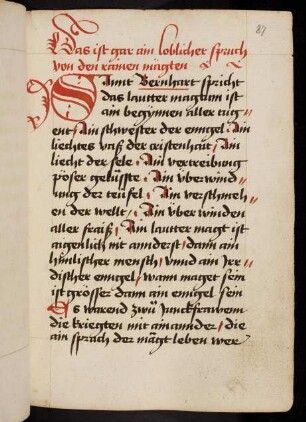 84
Das ist gar ain loblicher spruch
von den rainen mägten
Sannt Bernhart spricht
das lautter magtum ist
ain begynnen aller tug
ent / Ain schwester der enngel / Ain
liechtes vaß der cristenhait / Ain
liecht der sele / Ain vertreibung
pöser gelüsste / Ain überwind
ung der teüfel / Ain verschmech
en der wellt / Ain überwinden
aller fraiß / Ain lautter magt ist
aigenlich nit annderst / dann ain
himlischer mensch / vnnd ain Jrr
discher enngel / wann maget sein
ist grösser dann ain enngel sein
Es warend zwü Junckfrawenn
die kriegten mit ainannder / die
ain sprach der mägt leben wer